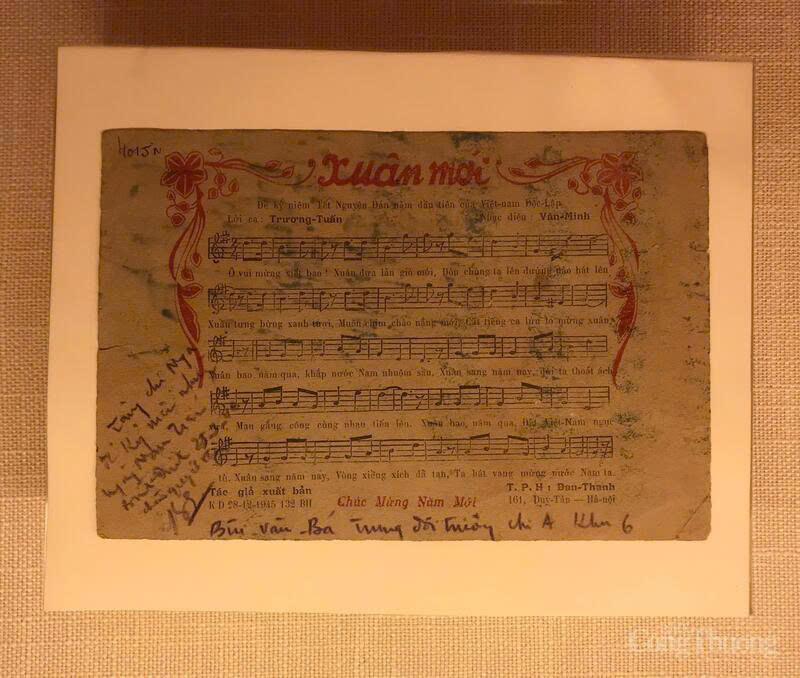 Xuân mới
Để kỷ niệm Tết Nguyên Đán năm đầu tiên của Việt-nam Độc-Lập
Lời ca : Trương-Tuấn Nhạc điệu : Văn-Minh
Ô vui mừng xiết bao ! Xuân đưa lần gió mới, Đón chúng ta lên đường nào hát lên
Xuân tưng bừng xanh tươi, Muôn chim chào nắng mới, Cất tiếng ca líu lo mừng xuân
Xuân bao năm qua, khắp nước Nam nhuộm sầu, Xuân sang năm nay, đời ta thoát ách
xưa, Mau gắng công cùng nhau tiến lên. Xuân bao năm qua, Đất Việt-Nam ngục
tù. Xuân sang năm nay, Vòng xiềng xích đã tan, Ta hát vang mừng nước Nam ta.
Tác giả xuất bản
K D 28-12-1945 132 BH
Chúc Mừng Năm Mới
T. P. H : Đan-Thanh
161, Duy-Tân — Hà-nội
Tặng chị Nga
Bùi văn Bá trung đội trưởng chi A Khu 6
Công Thương